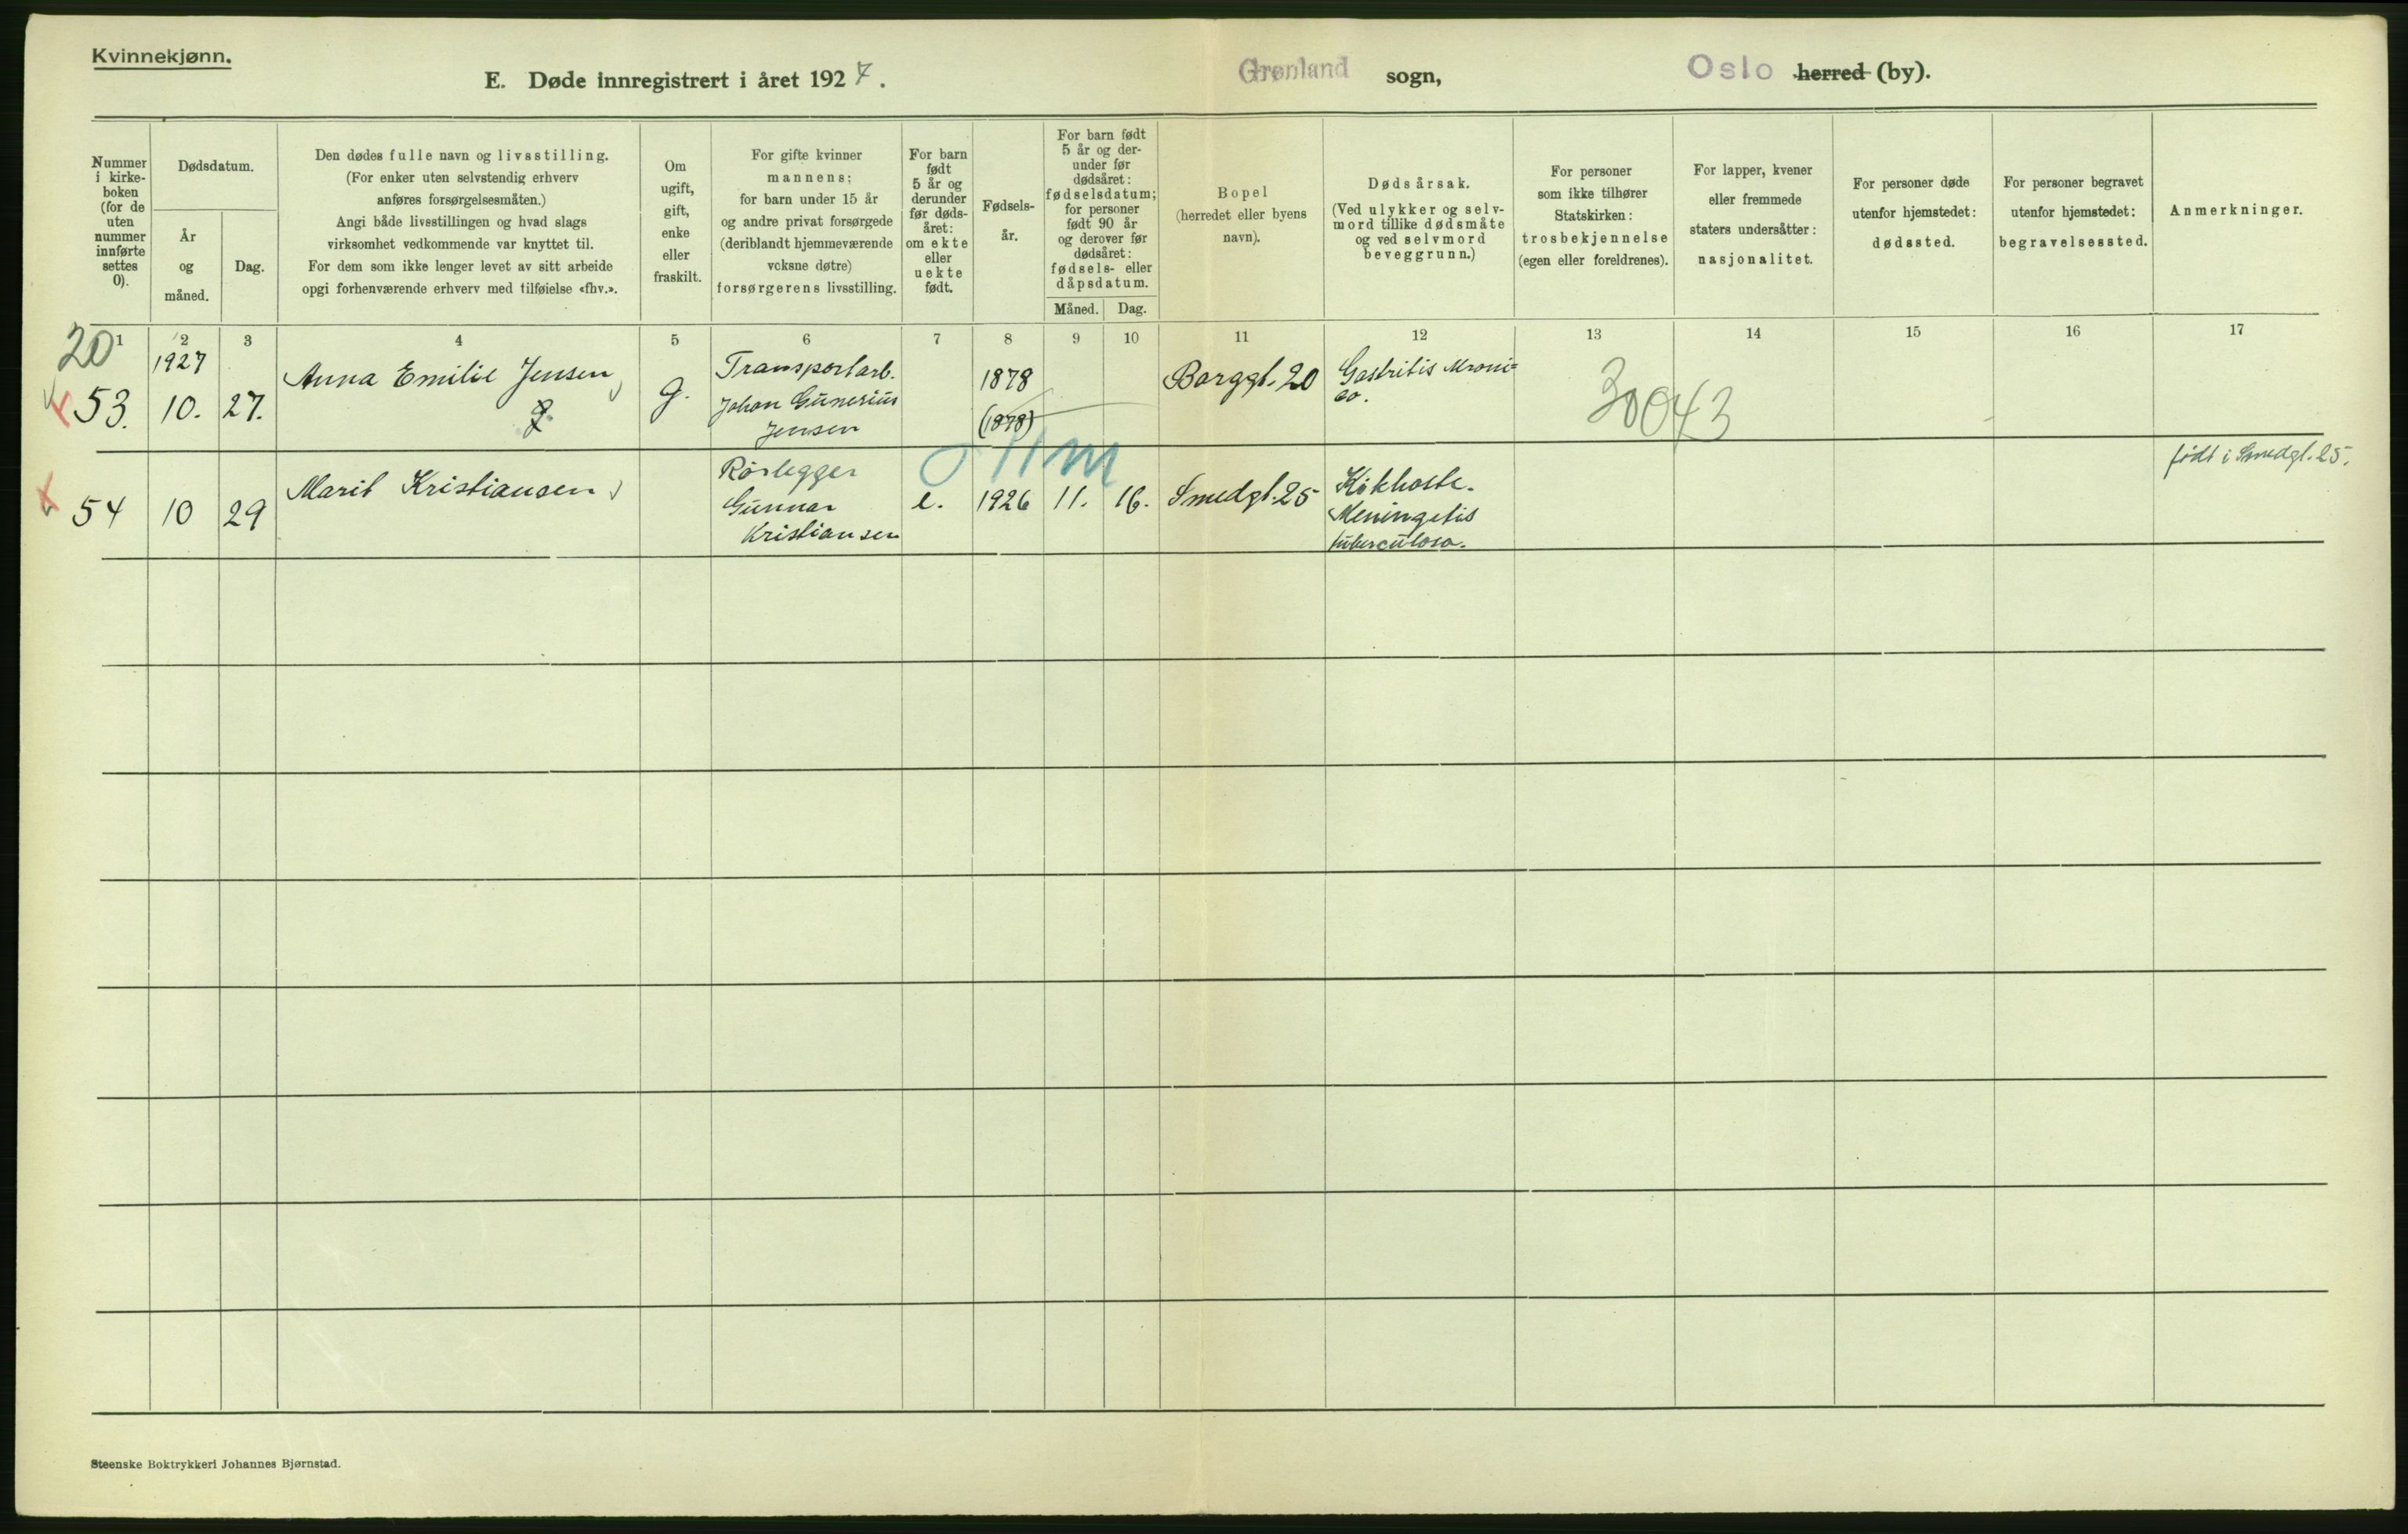 Kvinnekjønn.
E. Døde innregistrert i året 1927.
Grønland sogn,
Oslo herred (by).
Nummer
i kirke-
boken
(for de
uten
nummer
innførte
settes
0).
Dødsdatum.
År
og
måned.
Dag.
Den dødes fulle navn og livsstilling.
(For enker uten selvstendig erhverv
anføres forsørgelsesmåten.)
Angi både livsstillingen og hvad slags
virksomhet vedkommende var knyttet til.
For dem som ikke lenger levet av sitt arbeide
opgi forhenværende erhverv med tilføielse «fhv.».
Om
ugift,
gift,
enke
eller
fraskilt.
For gifte kvinner
mannens;
for barn under 15 år
og andre privat forsørgede
(deriblandt hjemmeværende
voksne døtre)
forsørgerens livsstilling.
For barn
født
5 år og
derunder
før døds-
året:
om ekte
eller
uekte
født.
Fødsels-
år.
For barn født
5 år og der-
under før
dødsåret:
fødselsdatum;
for personer
født 90 år
og derover før
dødsåret:
fødsels- eller
dåpsdatum.
Måned.
Dag.
Bopel
(herredet eller byens
navn).
Dødsårsak.
(Ved ulykker og selv-
mord tillike dødsmåte
og ved selvmord
beveggrunn.)
For personer
som ikke tilhører
Statskirken:
trosbekjennelse
(egen eller foreldrenes).
For lapper, kvener
eller fremmede
staters undersåtter:
nasjonalitet.
For personer døde
utenfor hjemstedet:
dødssted.
For personer begravet
utenfor hjemstedet:
begravelsessted.
Anmerkninger.
1 2 3 4 5 6 7 8 9 10 11 12 13 14 15 16 17
20
1927
53. 10. 27.
Anna Emilie Jensen
g.
Transportarb.
Johan Gunerius
Jensen
1878
(1878)
Borggt. 20
Gastritis kroni=
ca.
30043
11 m
54 10 29
Marit Kristiansen
Rørlegger
Gunnar
Kristiansen
e. 1926 11. 16.
Smedgt. 25
Kikhoste.
Meningitis
tuberculosa.
født i Smedgt. 25.
Steenske Boktrykkeri Johannes Bjørnstad.